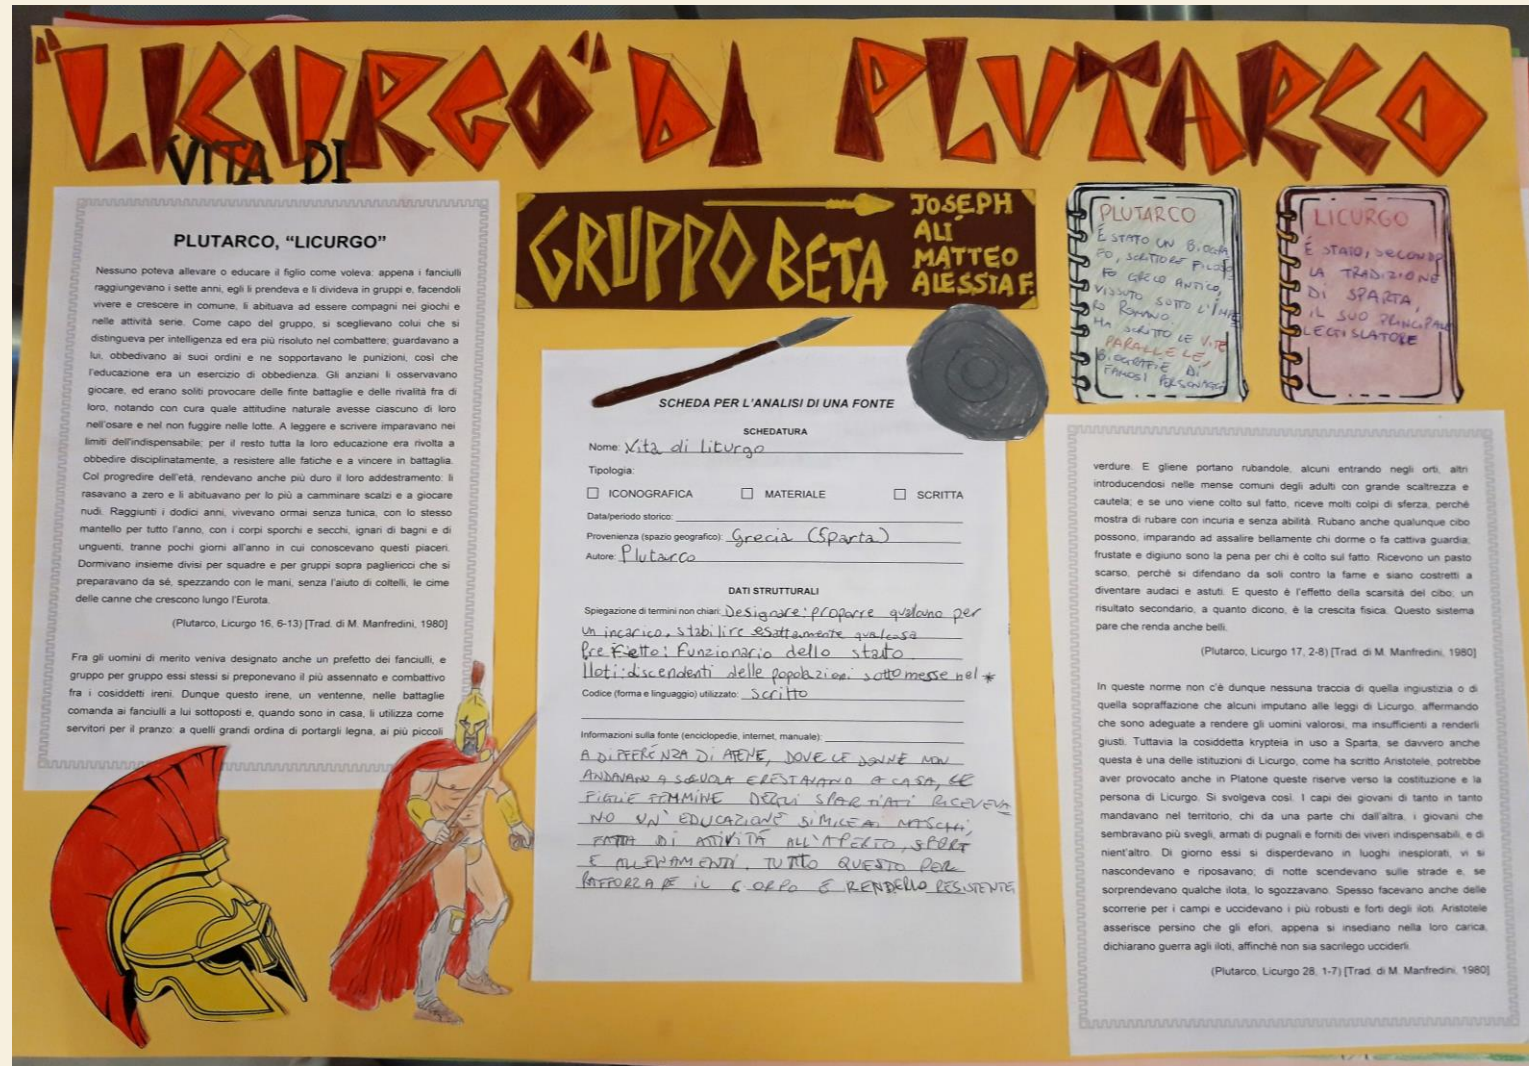 "LICURGO" DI PLUTARCO
VITA DI
PLUTARCO, “LICURGO”
Nessuno poteva allevare o educare il figlio come voleva: appena i fanciulli
raggiungevano i sette anni, egli li prendeva e li divideva in gruppi e, facendoli
vivere e crescere in comune, li abituava ad essere compagni nei giochi e
nelle attività serie. Come capo del gruppo, si sceglievano colui che si
distingueva per intelligenza ed era più risoluto nel combattere; guardavano a
lui, obbedivano ai suoi ordini e ne sopportavano le punizioni, così che
l'educazione era un esercizio di obbedienza. Gli anziani li osservavano
giocare, ed erano soliti provocare delle finte battaglie e delle rivalità fra di
loro, notando con cura quale attitudine naturale avesse ciascuno di loro
nell'osare e nel non fuggire nelle lotte. A leggere e scrivere imparavano nei
limiti dell'indispensabile; per il resto tutta la loro educazione era rivolta a
obbedire disciplinatamente, a resistere alle fatiche e a vincere in battaglia.
Col progredire dell'età, rendevano anche più duro il loro addestramento: li
rasavano a zero e li abituavano per lo più a camminare scalzi e a giocare
nudi. Raggiunti i dodici anni, vivevano ormai senza tunica, con lo stesso
mantello per tutto l'anno, con i corpi sporchi e secchi, ignari di bagni e di
unguenti, tranne pochi giorni all'anno in cui conoscevano questi piaceri.
Dormivano insieme divisi per squadre e per gruppi sopra pagliericci che si
preparavano da sé, spezzando con le mani, senza l'aiuto di coltelli, le cime
delle canne che crescono lungo l'Eurota.
(Plutarco, Licurgo 16, 6-13) [Trad. di M. Manfredini, 1980]
Fra gli uomini di merito veniva designato anche un prefetto dei fanciulli, e
gruppo per gruppo essi stessi si preponevano il più assennato e combattivo
fra i cosiddetti ireni. Dunque questo irene, un ventenne, nelle battaglie
comanda ai fanciulli a lui sottoposti e, quando sono in casa, li utilizza come
servitori per il pranzo: a quelli grandi ordina di portargli legna, ai più piccoli
GRUPPO BETA
JOSEPH
ALI
MATTEO
ALESSIA F.
SCHEDA PER L'ANALISI DI UNA FONTE
SCHEDATURA
Nome: Vita di liturgo
Tipologia:
☐ ICONOGRAFICA ☐ MATERIALE ☐ SCRITTA
Data/periodo storico:
Provenienza (spazio geografico): Grecia (Sparta)
Autore: Plutarco
DATI STRUTTURALI
Spiegazione di termini non chiari: Designare: proporre qualcuno per
un incarico, stabilire esattamente qualcosa
Prefietto: Funzionario dello stato
Iloti: discendenti delle popolazioni sottomesse nel *
Codice (forma e linguaggio) utilizzato: Scritto
Informazioni sulla fonte (enciclopedie, internet, manuale):
A DIFFERENZA DI ATENE, DOVE LE DONNE NON
ANDAVANO A SCUOLA E RESTAVANO A CASA, LE
FIGLIE FEMMINE DEGLI SPARTIATI RICEVEVA
NO UN' EDUCAZIONE SIMILE AI MASCHI,
FATTA DI ATTIVITÁ ALL'APERTO, SPORT
E ALLENAMENTI. TUTTO QUESTO PER
RAFFORZARE IL CORPO E RENDERLO RESISTENTE
PLUTARCO
É STATO UN BIOGRA
FO, SCRITTORE FILOSO
FO GRECO ANTICO,
VISSUTO SOTTO L'IMPE
RO ROMANO.
HA SCRITTO LE VITE
PARALLELE,
BIOGRAFIE DI
FAMOSI PERSONAGGI
LICURGO
É STATO, SECONDO
LA TRADIZIONE
DI SPARTA,
IL SUO PRINCIPALE
LEGISLATORE
verdure. E gliene portano rubandole, alcuni entrando negli orti, altri
introducendosi nelle mense comuni degli adulti con grande scaltrezza e
cautela; e se uno viene colto sul fatto, riceve molti colpi di sferza, perché
mostra di rubare con incuria e senza abilità. Rubano anche qualunque cibo
possono, imparando ad assalire bellamente chi dorme o fa cattiva guardia;
frustate e digiuno sono la pena per chi è colto sul fatto. Ricevono un pasto
scarso, perché si difendano da soli contro la fame e siano costretti a
diventare audaci e astuti. E questo è l'effetto della scarsità del cibo; un
risultato secondario, a quanto dicono, è la crescita fisica. Questo sistema
pare che renda anche belli.
(Plutarco, Licurgo 17, 2-8) [Trad. di M. Manfredini, 1980]
In queste norme non c'è dunque nessuna traccia di quella ingiustizia o di
quella sopraffazione che alcuni imputano alle leggi di Licurgo, affermando
che sono adeguate a rendere gli uomini valorosi, ma insufficienti a renderli
giusti. Tuttavia la cosiddetta krypteia in uso a Sparta, se davvero anche
questa è una delle istituzioni di Licurgo, come ha scritto Aristotele, potrebbe
aver provocato anche in Platone queste riserve verso la costituzione e la
persona di Licurgo. Si svolgeva così. I capi dei giovani di tanto in tanto
mandavano nel territorio, chi da una parte chi dall'altra, i giovani che
sembravano più svegli, armati di pugnali e forniti dei viveri indispensabili, e di
nient'altro. Di giorno essi si disperdevano in luoghi inesplorati, vi si
nascondevano e riposavano; di notte scendevano sulle strade e, se
sorprendevano qualche ilota, lo sgozzavano. Spesso facevano anche delle
scorrerie per i campi e uccidevano i più robusti e forti degli iloti. Aristotele
asserisce persino che gli efori, appena si insediano nella loro carica,
dichiarano guerra agli iloti, affinché non sia sacrilego ucciderli.
(Plutarco, Licurgo 28, 1-7) [Trad. di M. Manfredini, 1980]